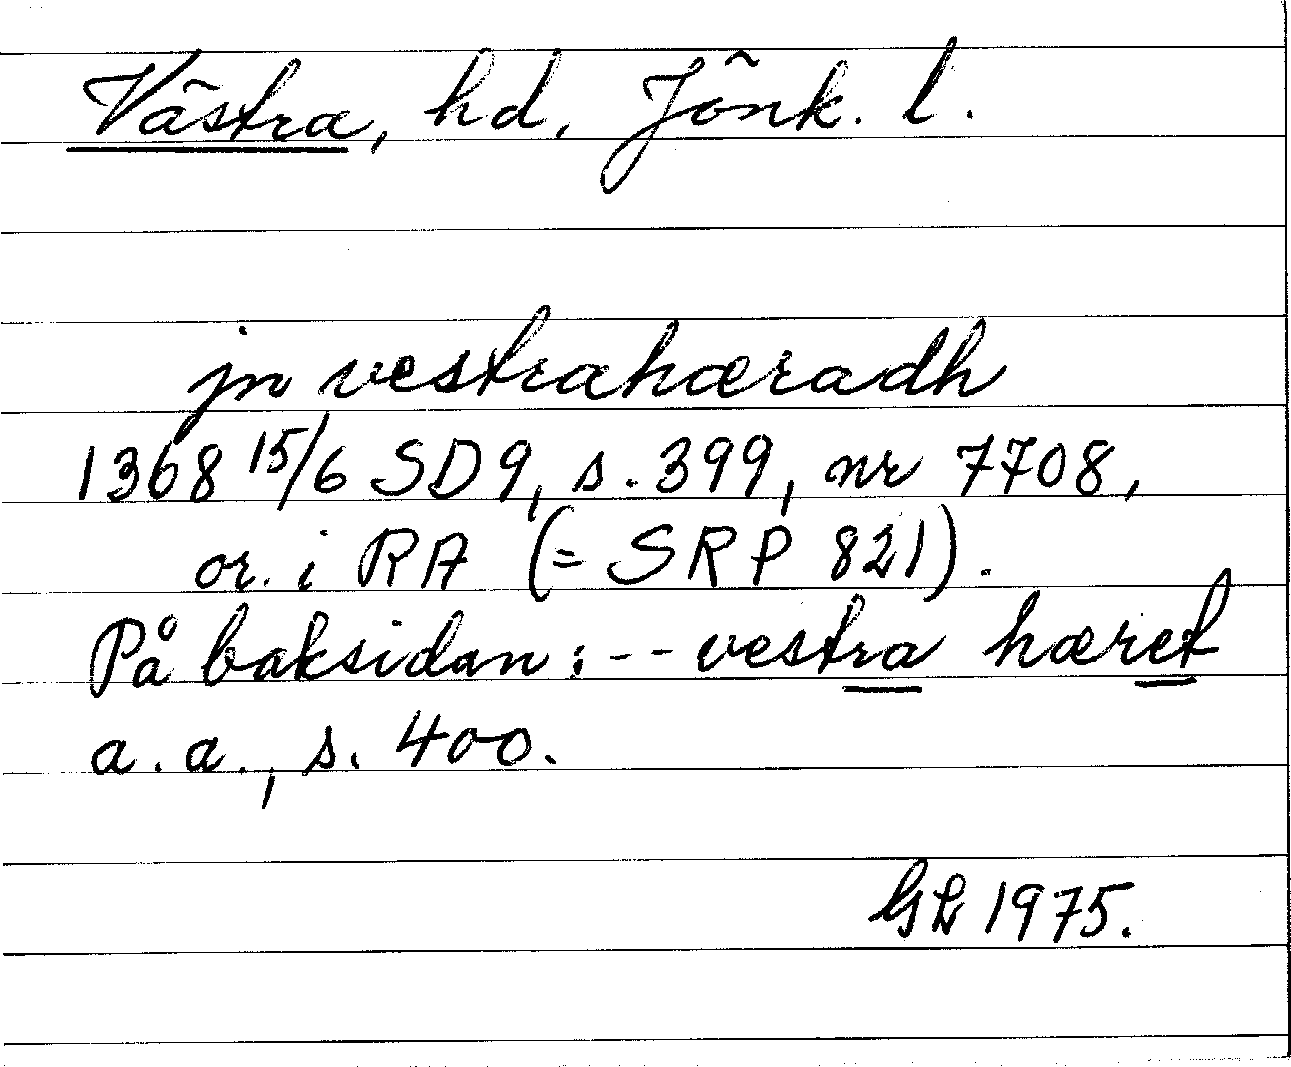 Västra, hd, Jönk. l.
jn vestrahæradh
1368 15/6 SD9, s. 399, nr 7708,
or. i RA (= SRP 821).
På baksidan: -- vestra hæret
a.a., s. 400.
GL 1975.